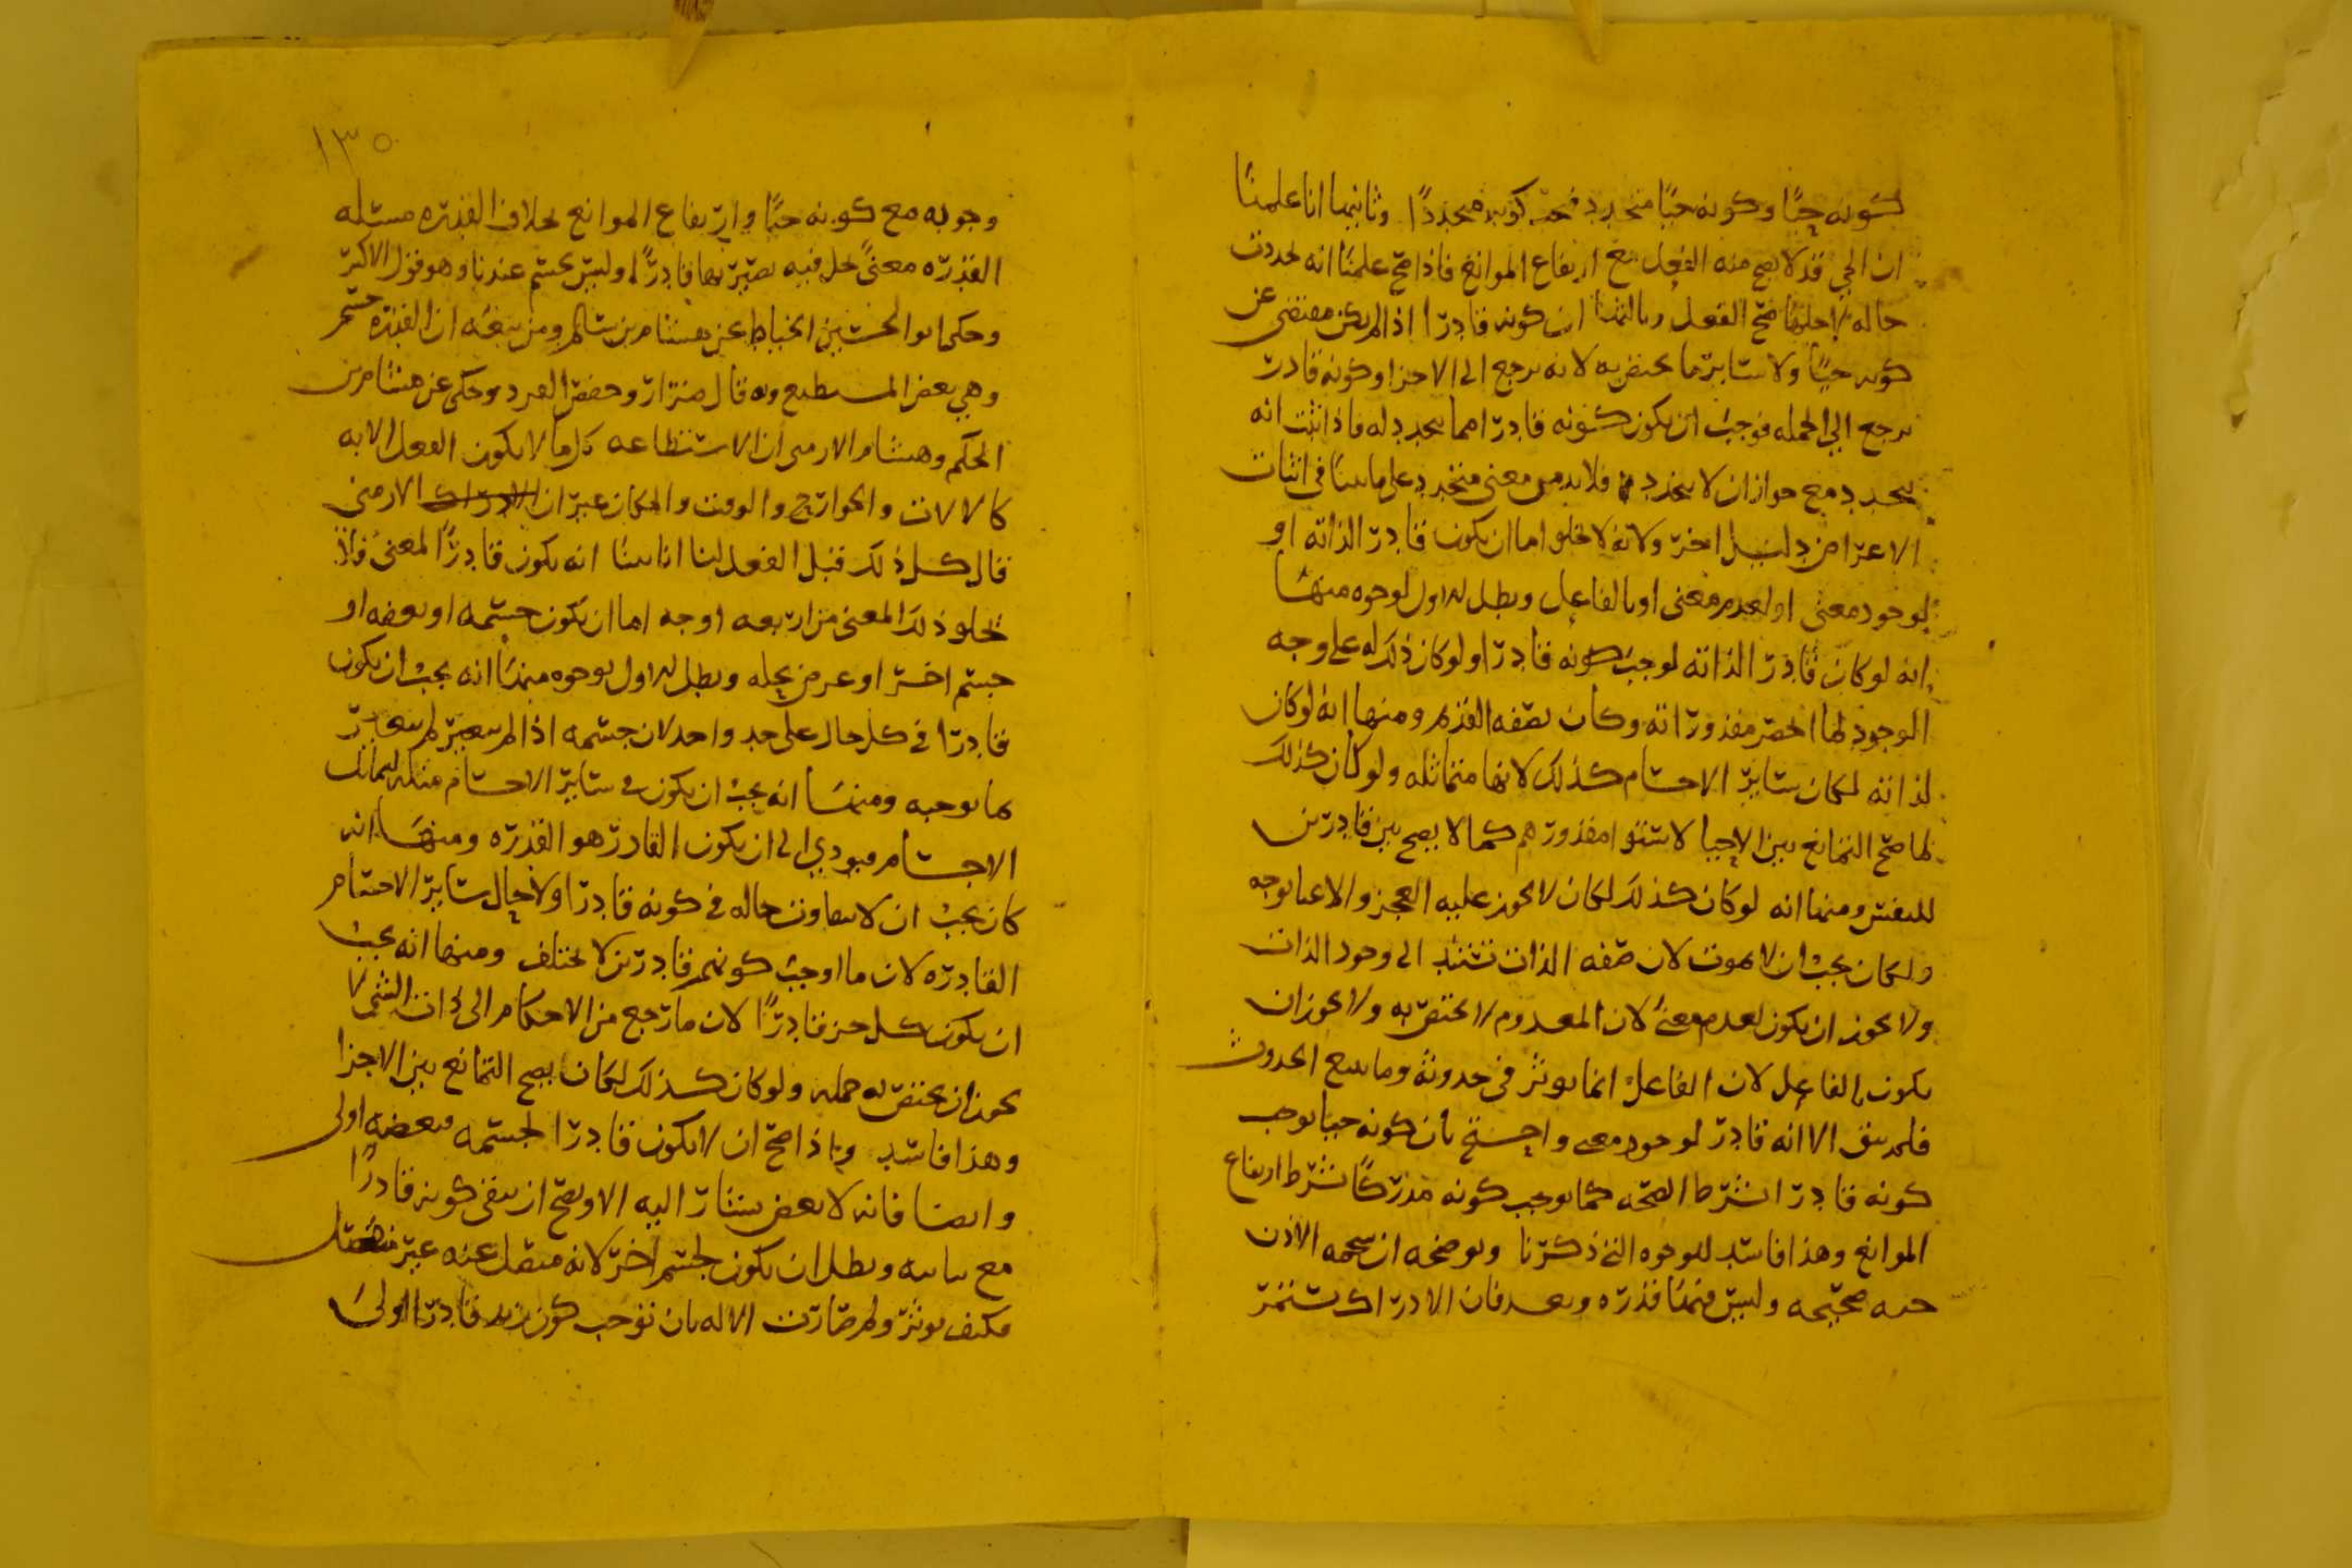 كونه حيًا وكونه حيًا متجدد فيجب كونه متجددًا وثانيها انا علمنا
ان الحي قد لا يصح منه الفعل مع ارتفاع الموانع فاذا صح علمنا انه تجددت
حاله لاجلها صح الفعل وثالثها ان كونه قادرا اذا لم يكن مقتضى عن
كونه حيًا ولا سائر ما يختص به لانه يرجع الى الاجزا وكونه قادرا
يرجع الي الجمله فوجب ان يكون كونه قادرا مما يتجدد له فاذا ثبت انه
يتجدد مع جواز ان لا يتجدد فلا بد من معنى متجدد على ما بينا في اثبات
الاعراض دليل اخر ولانه لا يخلو اما ان يكون قادرا لذاته او
لوجود معنى او لعدم معنى او بالفاعل وبطل الاول لوجوه منها
انه لو كان قادرا لذاته لوجب كونه قادرا ولو كان ذلك له على وجه
الوجود لما انحصر مقدوراته وكان بصفه القديم ومنها انه لو كان
لذاته لكان سائر الاجسام كذلك لانها متماثله ولو كان كذلك
لما صح التمانع بين الاحيا لاستوا مقدورهم كما لا يصح بين قادرين
للنفس ومنها انه لو كان كذلك لكان لا يجوز عليه العجز والاعيا بوجه
ولكان يجب ان لا يموت لان صفه الذات تستند الى وجود الذات
ولا يجوز ان يكون لعدم معنى لان المعدوم لا يختص به ولا يجوز ان
يكون بالفاعل لان الفاعل انما يوثر في حدوثه وما يتبع الحدوث
فلم يبق الا انه قادر لوجود معنى واحتج بان كونه حيا يوجب
كونه قادرا بشرط الصحه كما يوجب كونه مدركًا بشرط ارتفاع
الموانع وهذا فاسد للوجوه التي ذكرنا ويوضحه ان شحمه الاذن
حيه صحيحه وليس فيها قدره وبعد فان الادراك يستمر
١٣٥
وجوبه مع كونه حيًا وارتفاع الموانع بخلاف القدره مسئله
القدره معنىً يحل فيه يصير بها قادرًا وليس بجسم عندنا وهو قول الاكثر
وحكى ابو الحسين الخياط عن هشام بن سالم ومن تبعه ان القدره جسم
وهي بعض المستطيع وبه قال ضرار وحفص الفرد وحكى عن هشام بن
الحكم وهشام الارمى ان الاستطاعه كل ما لا يكون الفعل الا به
كالالات والجوارح والوقت والمكان غير ان الادراك الارمني
قال كل ذلك قبل الفعل لنا انا بينا انه يكون قادرًا لمعنى فلا
يخلو ذلك المعنى من اربعه اوجه اما ان يكون جسمه او بعضه او
جسم اخر او عرض يحله وبطل الاول لوجوه منها انه يجب ان يكون
قادرا في كل حال على حد واحد لان جسمه اذا لم يتغير لم يتغير
ما يوجبه ومنها انه يجب ان يكون في سائر الاجسام مثله لتماثل
الاجسام فيودي الى ان يكون القادر هو القدره ومنها انه
كان يجب ان لا يتفاوت حاله في كونه قادرا ولا حال سائر الاجسام
القادره لان ما اوجب كونهم قادرين لا يختلف ومنها انه يجب
ان يكون كل جزء قادرًا لان ما يرجع من الاحكام الى ذات الشي لا
يجوز ان يختص به جمله ولو كان كذلك لكان يصح التمانع بين الاجزا
وهذا فاسد واذا صح ان لا يكون قادرا لجسمه فبعضه اولى
وايضا فانه لا بعض يشار اليه الا ويصح ان يبقى كونه قادرًا
مع وبطل ان يكون لجسم اخر لانه منفصل عنه غير متصل
فكيف يوثر ولم صارت الاله بان توجب كون زيد قادرا اولى